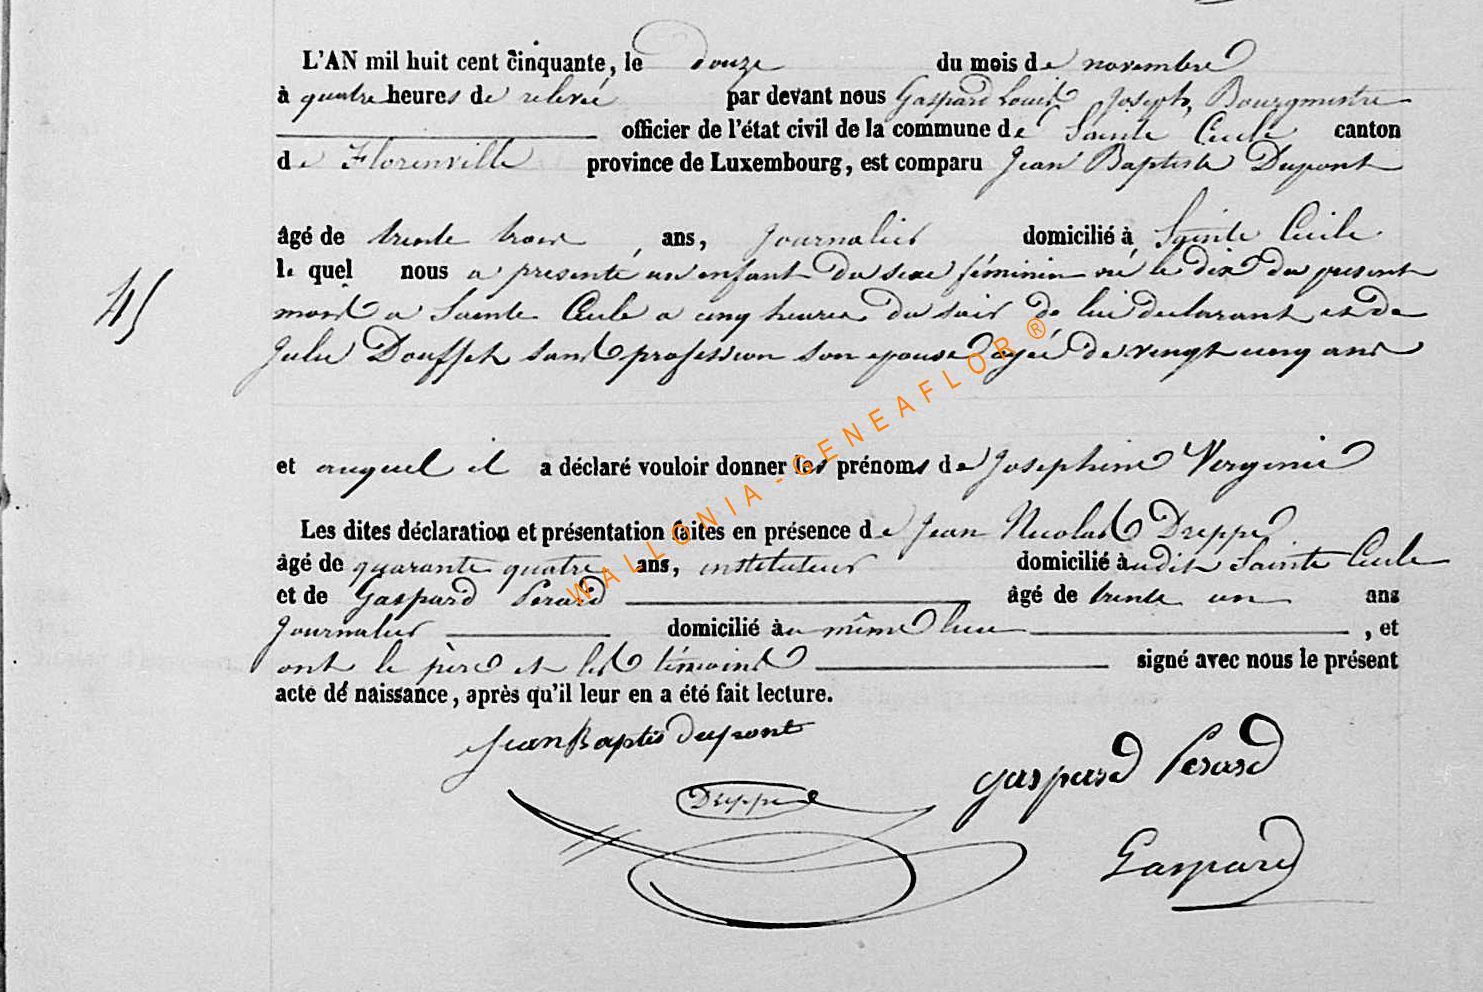 L'AN mil huit cent cinquante, le douze du mois de novembre
à quatre heures de relevée par devant nous Gaspard Louis Joseph, Bourgmestre
officier de l'état civil de la commune de Sainte Cecile canton
de Florenville province de Luxembourg, est comparu Jean Baptiste Dupont
âgé de trente trois ans, Journalier domicilié à Sainte Cecile
le quel nous a presenté un enfant du sexe féminin né le dix du present
45
mois a Sainte Cecile a cinq heures du soir de lui declarant et de
Julie Douffet sans profession son epouse agée de vingt cinq ans
et auquel il a déclaré vouloir donner les prénoms de Josephine Virginie
Les dites déclaration et présentation faites en présence de Jean Nicolas Dreppe
âgé de quarante quatre ans, instituteur domicilié audit Sainte Cecile
et de Gaspard Perard âgé de trente un ans
Journalier domicilié au même lieu, et
ont le père et les témoins signé avec nous le présent
acte de naissance, après qu'il leur en a été fait lecture.
Jean Baptis dupont
gaspard Perard
Dreppe
Gaspard
WALLONIA-GENEAFLOR ®